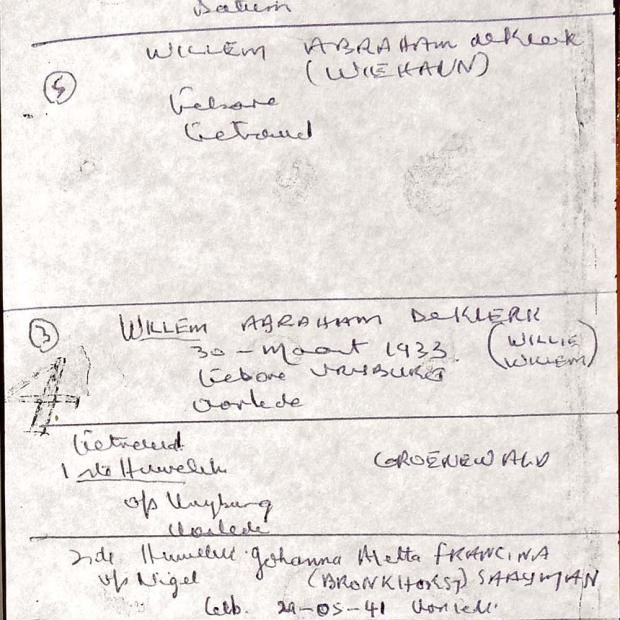 Datum
WILLEM ABRAHAM de Klerk
(WIEHANN)
5
Gebore
Getroud
3
WILLEM ABRAHAM DE KLERK
30 - Maart 1933. (WILLIE
WILLEM)
Gebore VRYBURG
Oorlede
4
Getroud
1 ste Huwelik GROENEWALD
op Vryburg
Oorlede
2de Huwelik Johanna Metta FRANCINA
op Nigel (BRONKHORST) SAAYMAN
Geb. 29-05-41 Oorlede